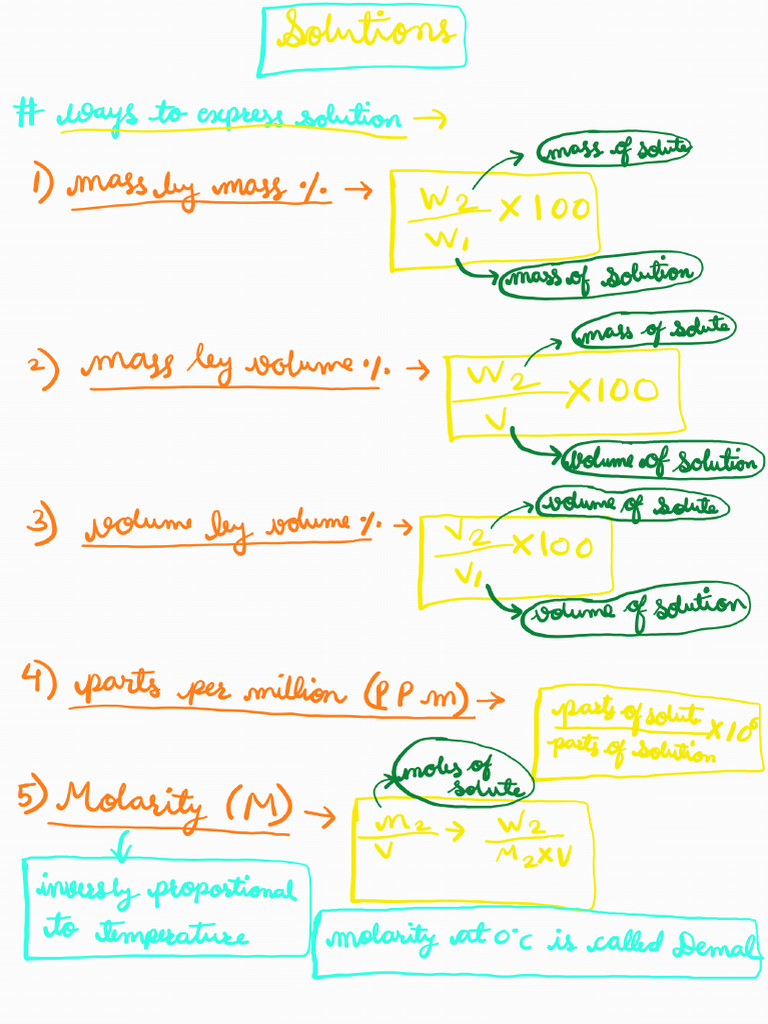 Solutions
# Ways to express solution →
1) mass by mass % → W2/W1 X 100
mass of solute
mass of solution
2) mass by volume % → W2/V X100
mass of solute
volume of solution
3) volume by volume % → V2/V1 X100
volume of solute
volume of solution
4) parts per million (PPm) → parts of solut/parts of solution X10⁶
5) Molarity (M) → n2/V → W2/M2XV
moles of
solute
inversly proportional
to temperature
molarity at 0°C is called Demal